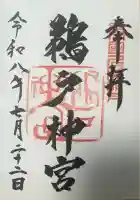 奉拝
鵜戸神宮
令和八年七月二十二日